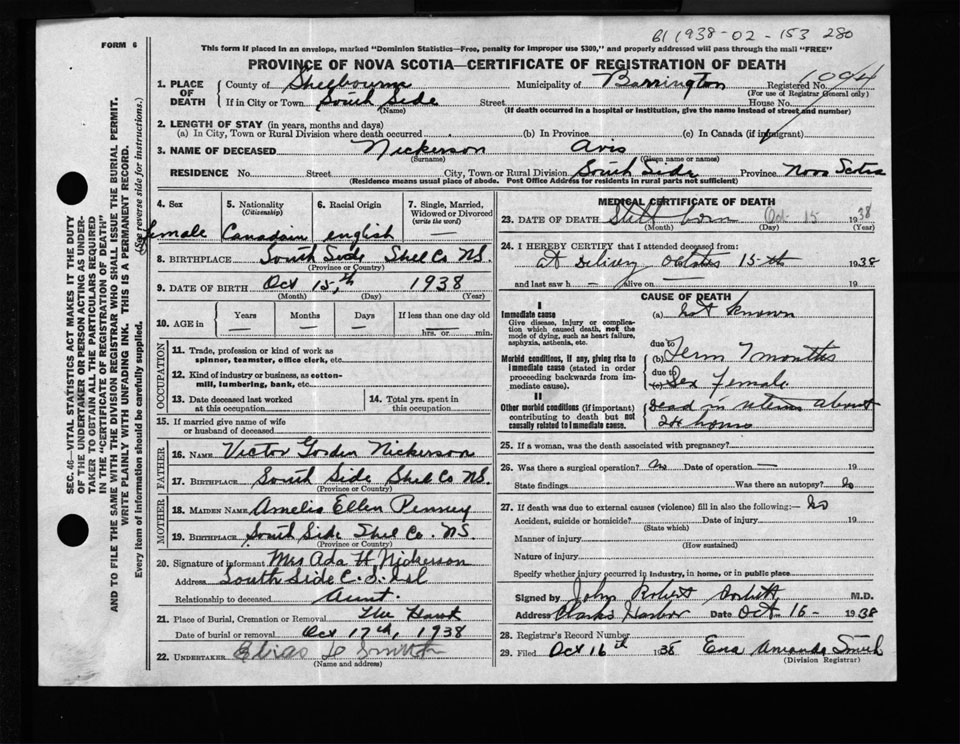 BI 1938-02-153 280
FORM 6
This form if placed in an envelope, marked "Dominion Statistics—Free, penalty for improper use $300," and properly addressed will pass through the mail "FREE"
PROVINCE OF NOVA SCOTIA—CERTIFICATE OF REGISTRATION OF DEATH
1094
1. PLACE OF DEATH County of Shelbourne Municipality of Barrington Registered No.
(For use of Registrar General only)
If in City or Town South Side Street House No.
(Name) (If death occurred in a hospital or institution, give the name instead of street and number)
2. LENGTH OF STAY (in years, months and days)
(a) In City, Town or Rural Division where death occurred (b) In Province (c) In Canada (if immigrant)
3. NAME OF DECEASED Nickerson Avis
(Surname) (Given name or names)
RESIDENCE No. Street City, Town or Rural Division South Side Province Nova Scotia
(Residence means usual place of abode. Post Office Address for residents in rural parts not sufficient)
4. Sex 5. Nationality 6. Racial Origin 7. Single, Married,
(Citizenship) Widowed or Divorced
(write the word)
female Canadain english —
8. BIRTHPLACE South Side Shel Co NS.
(Province or Country)
9. DATE OF BIRTH Oct 15,th 1938
(Month) (Day) (Year)
10. AGE in Years Months Days If less than one day old
— — — hrs. or min.
OCCUPATION
11. Trade, profession or kind of work as
spinner, teamster, office clerk, etc.
12. Kind of industry or business, as cotton-
mill, lumbering, bank, etc.
13. Date deceased last worked 14. Total yrs. spent in
at this occupation this occupation
15. If married give name of wife
or husband of deceased
FATHER
16. NAME Victor Gorden Nickerson
17. BIRTHPLACE South Side Shel Co NS.
(Province or Country)
MOTHER
18. MAIDEN NAME Amelia Ellen Penney
19. BIRTHPLACE South Side Shel Co. NS
(Province or Country)
20. Signature of informant Mrs Ada H Nickerson
Address South Side C. S. Isl
Relationship to deceased Aunt.
21. Place of Burial, Cremation or Removal The Hawk
Date of burial or removal Oct 17th, 1938
22. UNDERTAKER Elias Smith
(Name and address)
MEDICAL CERTIFICATE OF DEATH
23. DATE OF DEATH Still born Oct 15 1938
(Month) (Day) (Year)
24. I HEREBY CERTIFY that I attended deceased from:
At Delivery 15-th 1938
and last saw h — alive on — 19
CAUSE OF DEATH
I
Immediate cause (a) Not known
Give disease, injury or complica-
tion which caused death, not the
mode of dying, such as heart failure,
asphyxia, asthenia, etc.
due to
Morbid conditions, if any, giving rise to (b) Term 7 months
immediate cause (stated in order
proceeding backwards from im- due to
mediate cause). (c) Sex Female.
II
Other morbid conditions (if important) Dead in uterus about
contributing to death but not
causally related to immediate cause. 24 hours
25. If a woman, was the death associated with pregnancy?
26. Was there a surgical operation? No Date of operation — 19
State findings Was there an autopsy? No
27. If death was due to external causes (violence) fill in also the following:— No
Accident, suicide or homicide? Date of injury 19
(State which)
Manner of injury
(How sustained)
Nature of injury
Specify whether injury occurred in industry, in home, or in public place
Signed by John Robert Corbett M.D.
Address Clarks Harbor Date Oct 15- 1938
28. Registrar's Record Number
29. Filed Oct 16th 1938 Ena Amanda Smith
(Division Registrar)
SEC. 46—VITAL STATISTICS ACT MAKES IT THE DUTY
OF THE UNDERTAKER OR PERSON ACTING AS UNDER-
TAKER TO OBTAIN ALL THE PARTICULARS REQUIRED
IN THE "CERTIFICATE OF REGISTRATION OF DEATH"
AND TO FILE THE SAME WITH THE DIVISION REGISTRAR WHO SHALL ISSUE THE BURIAL PERMIT.
WRITE PLAINLY WITH UNFADING INK. THIS IS A PERMANENT RECORD.
Every item of Information should be carefully supplied. (See reverse side for instructions.)